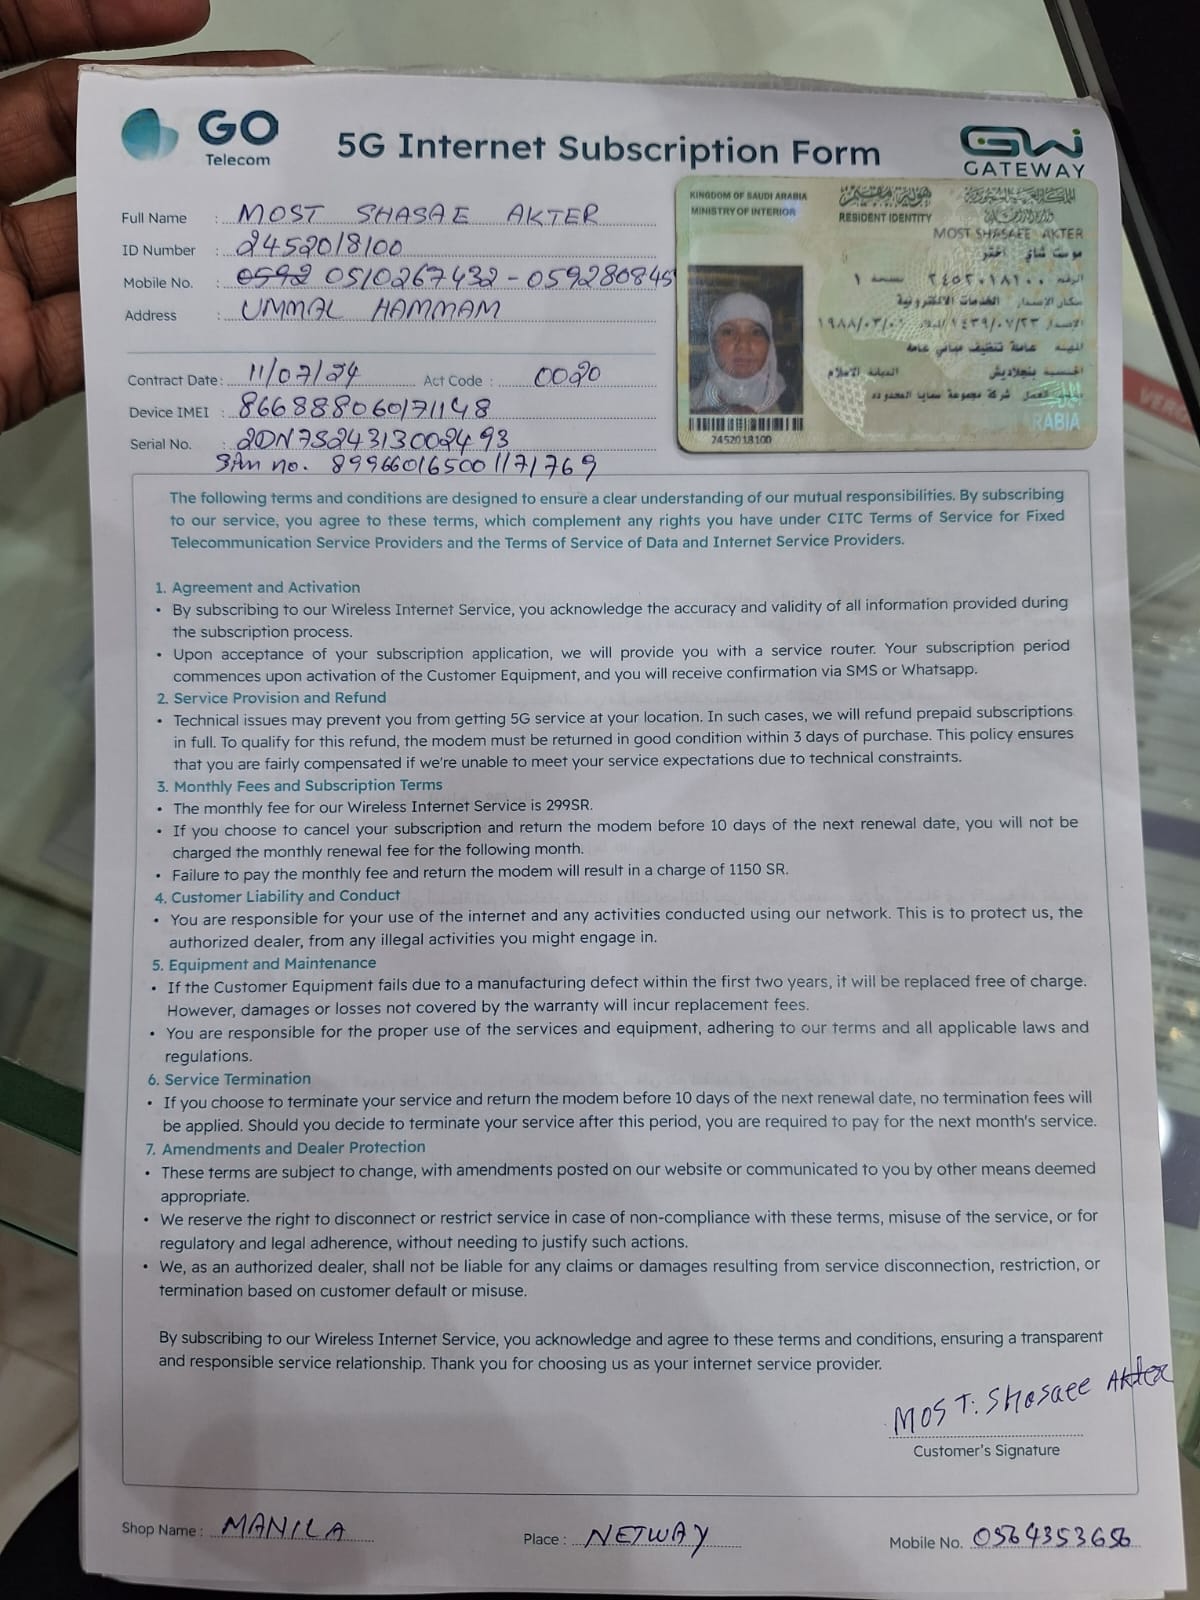 GO
Telecom
5G Internet Subscription Form
GWi
GATEWAY
Full Name : MOST SHASAE AKTER
ID Number : 2452018100
Mobile No. : 0592 0510267432 - 059280845
Address : UMMAL HAMMAM
Contract Date : 11/07/24 Act Code : 0020
Device IMEI : 866888060171148
Serial No. : 2DN7S24313002493
SIM no. 899660165001171769
KINGDOM OF SAUDI ARABIA
MINISTRY OF INTERIOR
RESIDENT IDENTITY
MOST SHASAEE AKTER
موست شاي اختر
الرقم ٢٤٥٢٠١٨١٠٠ نسخة ١
مكان الاصدار الخدمات الالكترونية
المهنة عاملة تنظيف مباني عامة
الجنسية بنجلاديش الديانة الاسلام
شركة مجموعة سمايا المحدوده
ARABIA
2452018100
The following terms and conditions are designed to ensure a clear understanding of our mutual responsibilities. By subscribing
to our service, you agree to these terms, which complement any rights you have under CITC Terms of Service for Fixed
Telecommunication Service Providers and the Terms of Service of Data and Internet Service Providers.
1. Agreement and Activation
• By subscribing to our Wireless Internet Service, you acknowledge the accuracy and validity of all information provided during
the subscription process.
• Upon acceptance of your subscription application, we will provide you with a service router. Your subscription period
commences upon activation of the Customer Equipment, and you will receive confirmation via SMS or Whatsapp.
2. Service Provision and Refund
• Technical issues may prevent you from getting 5G service at your location. In such cases, we will refund prepaid subscriptions
in full. To qualify for this refund, the modem must be returned in good condition within 3 days of purchase. This policy ensures
that you are fairly compensated if we're unable to meet your service expectations due to technical constraints.
3. Monthly Fees and Subscription Terms
• The monthly fee for our Wireless Internet Service is 299SR.
• If you choose to cancel your subscription and return the modem before 10 days of the next renewal date, you will not be
charged the monthly renewal fee for the following month.
• Failure to pay the monthly fee and return the modem will result in a charge of 1150 SR.
4. Customer Liability and Conduct
• You are responsible for your use of the internet and any activities conducted using our network. This is to protect us, the
authorized dealer, from any illegal activities you might engage in.
5. Equipment and Maintenance
• If the Customer Equipment fails due to a manufacturing defect within the first two years, it will be replaced free of charge.
However, damages or losses not covered by the warranty will incur replacement fees.
• You are responsible for the proper use of the services and equipment, adhering to our terms and all applicable laws and
regulations.
6. Service Termination
• If you choose to terminate your service and return the modem before 10 days of the next renewal date, no termination fees will
be applied. Should you decide to terminate your service after this period, you are required to pay for the next month's service.
7. Amendments and Dealer Protection
• These terms are subject to change, with amendments posted on our website or communicated to you by other means deemed
appropriate.
• We reserve the right to disconnect or restrict service in case of non-compliance with these terms, misuse of the service, or for
regulatory and legal adherence, without needing to justify such actions.
• We, as an authorized dealer, shall not be liable for any claims or damages resulting from service disconnection, restriction, or
termination based on customer default or misuse.
By subscribing to our Wireless Internet Service, you acknowledge and agree to these terms and conditions, ensuring a transparent
and responsible service relationship. Thank you for choosing us as your internet service provider.
MOST: Shasaee Akter
Customer's Signature
Shop Name : MANILA Place : NETWAY Mobile No. 0564353656